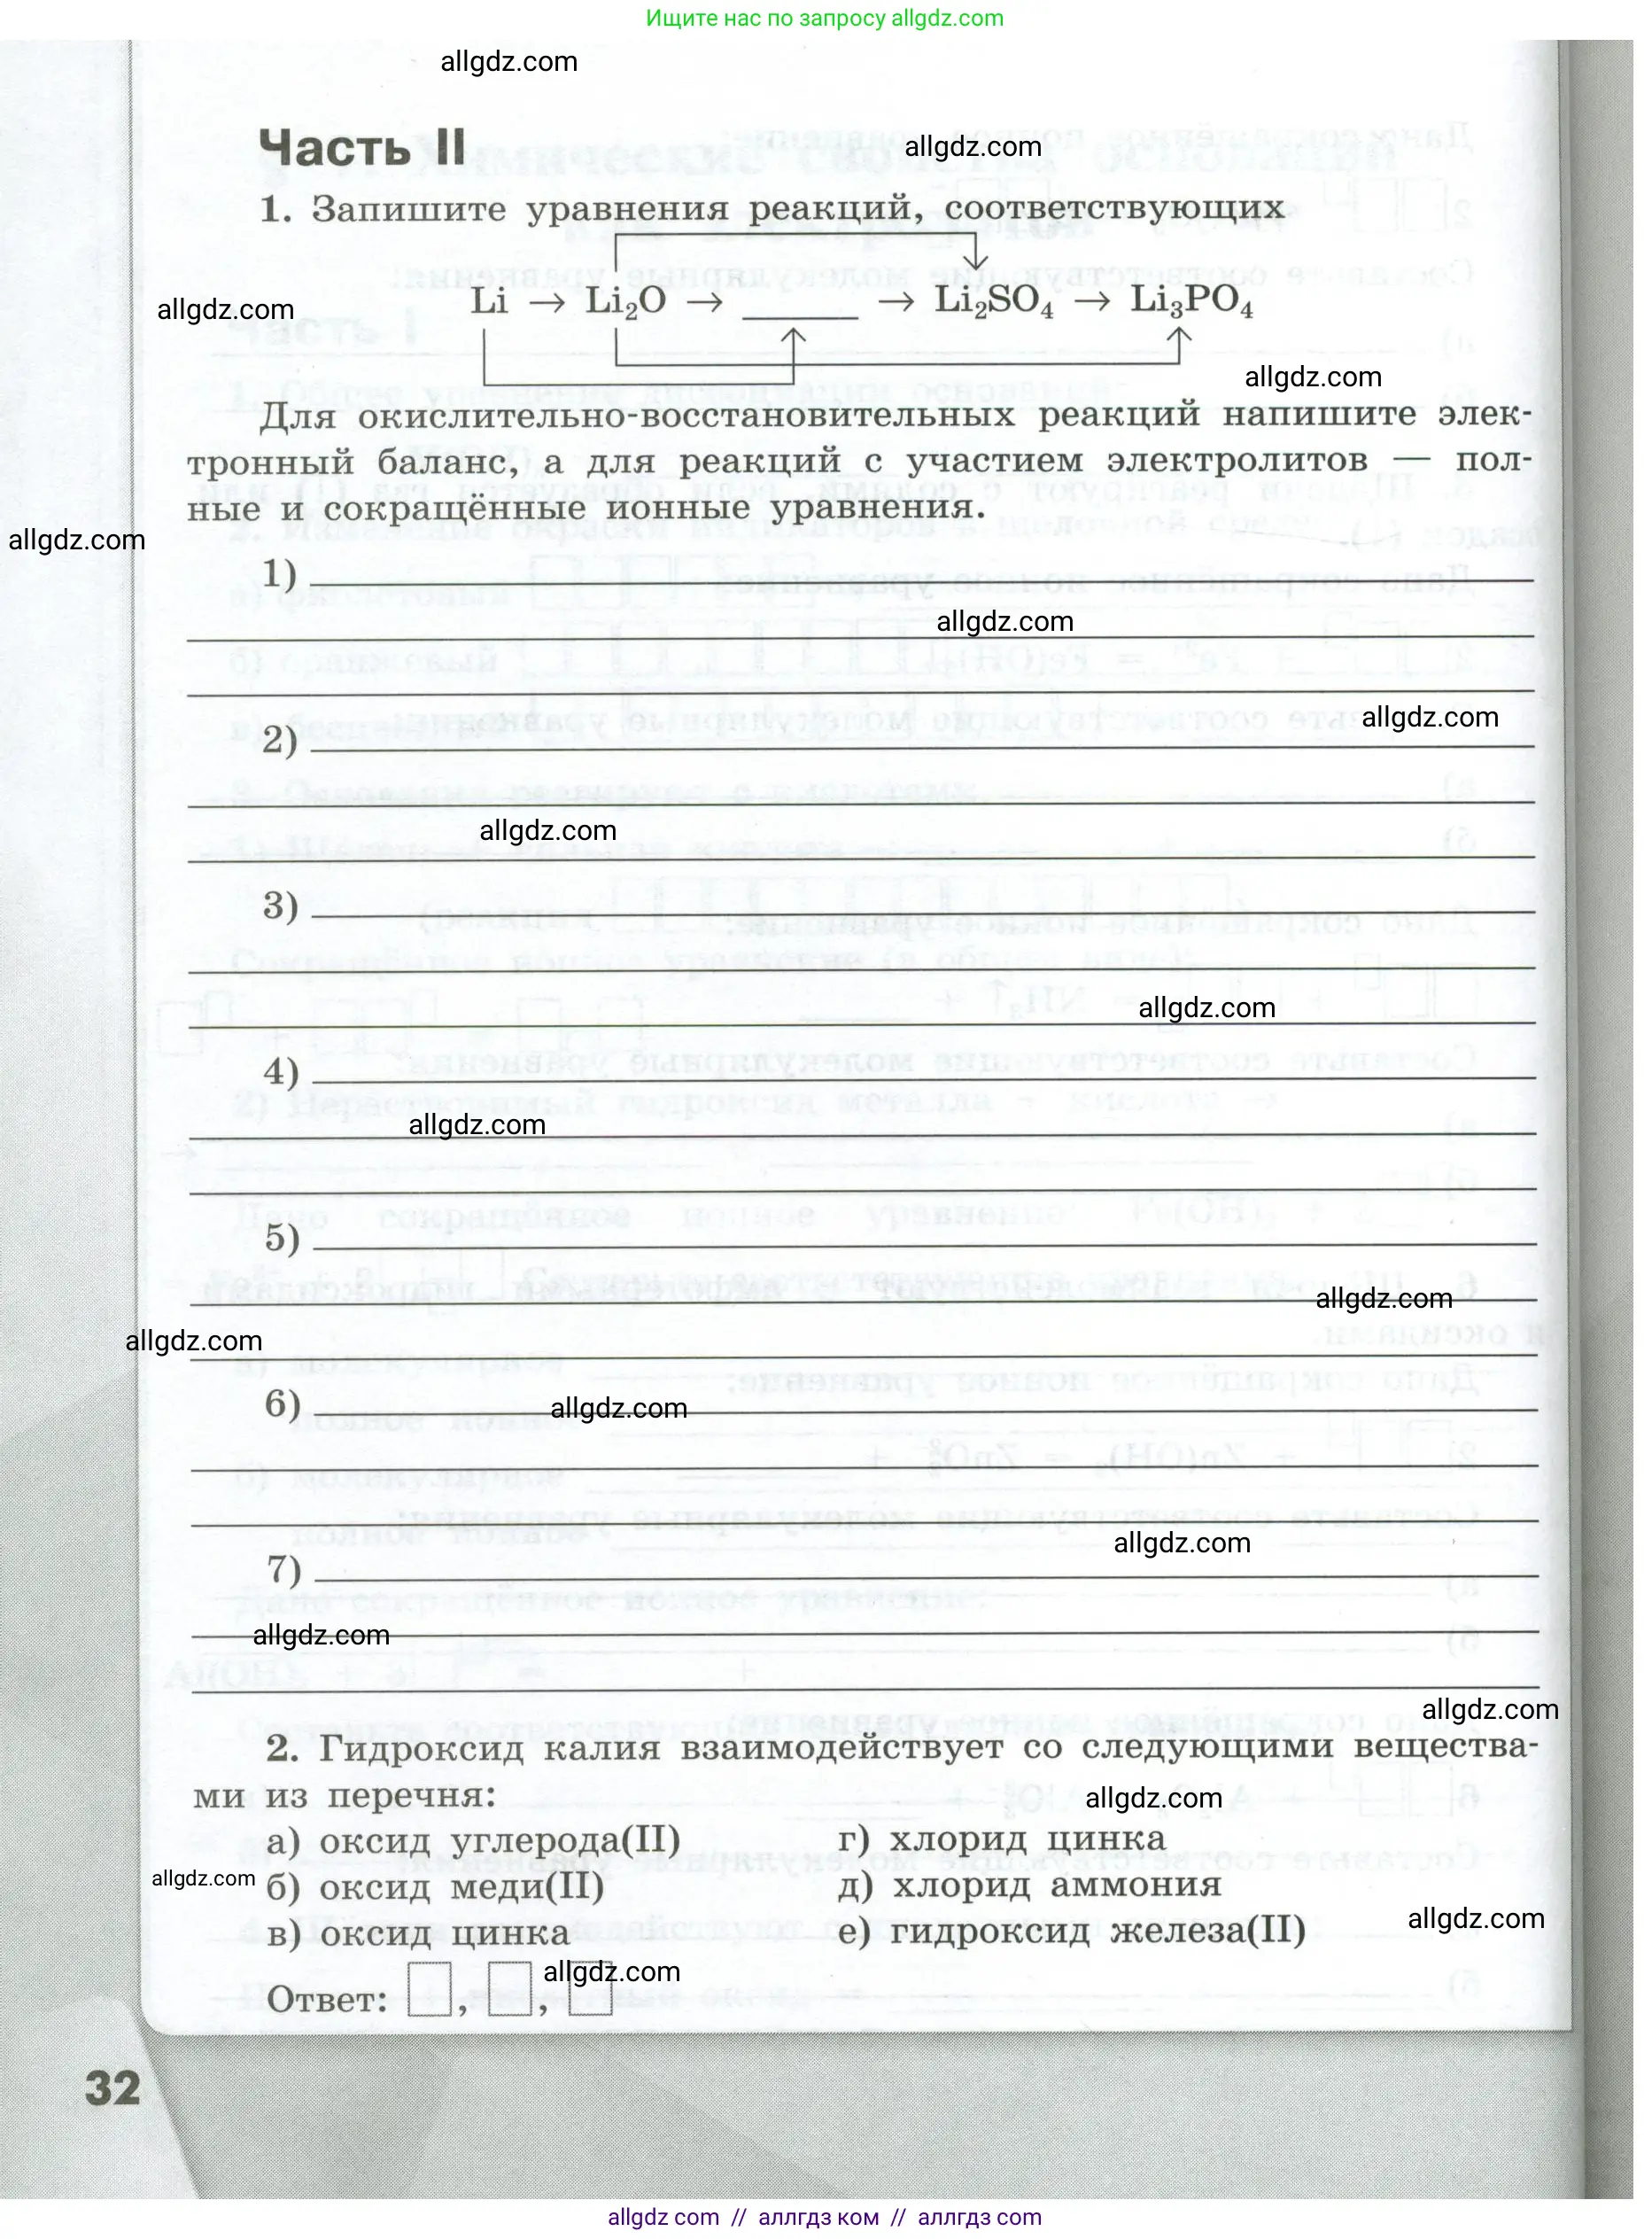 Ищите нас по запросу allgdz.com
allgdz.com
Часть II
allgdz.com
1. Запишите уравнения реакций, соответствующих
Li → Li₂O → ______ → Li₂SO₄ → Li₃PO₄
allgdz.com
allgdz.com
Для окислительно-восстановительных реакций напишите элек-
тронный баланс, а для реакций с участием электролитов — пол-
ные и сокращённые ионные уравнения.
allgdz.com
1)
allgdz.com
allgdz.com
2)
allgdz.com
3)
allgdz.com
4)
allgdz.com
5)
allgdz.com
allgdz.com
6)
allgdz.com
allgdz.com
7)
allgdz.com
allgdz.com
2. Гидроксид калия взаимодействует со следующими вещества-
ми из перечня:
allgdz.com
а) оксид углерода(II)
г) хлорид цинка
allgdz.com
б) оксид меди(II)
д) хлорид аммония
allgdz.com
в) оксид цинка
е) гидроксид железа(II)
allgdz.com
Ответ: , ,
32
allgdz.com // аллгдз ком // аллгдз.com